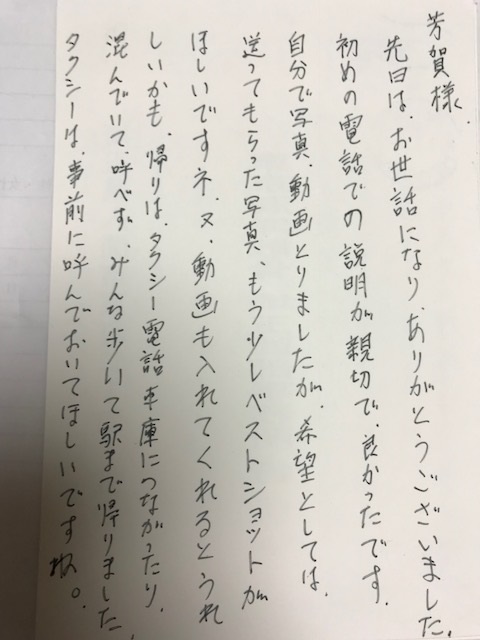 芳賀様.
先日は、お世話になり、ありがとうございました。
初めの電話での説明が親切で、良かったです。
自分で写真、動画とりましたが、希望としては、
送ってもらった写真、もう少しベストショットが
ほしいですネ、又、動画も入れてくれるとうれ
しいかも、帰りは、タクシー電話車庫につながったり、
混んでいて、呼べず、みんな歩いて駅まで帰りました、
タクシーは事前に呼んでおいてほしいですね。